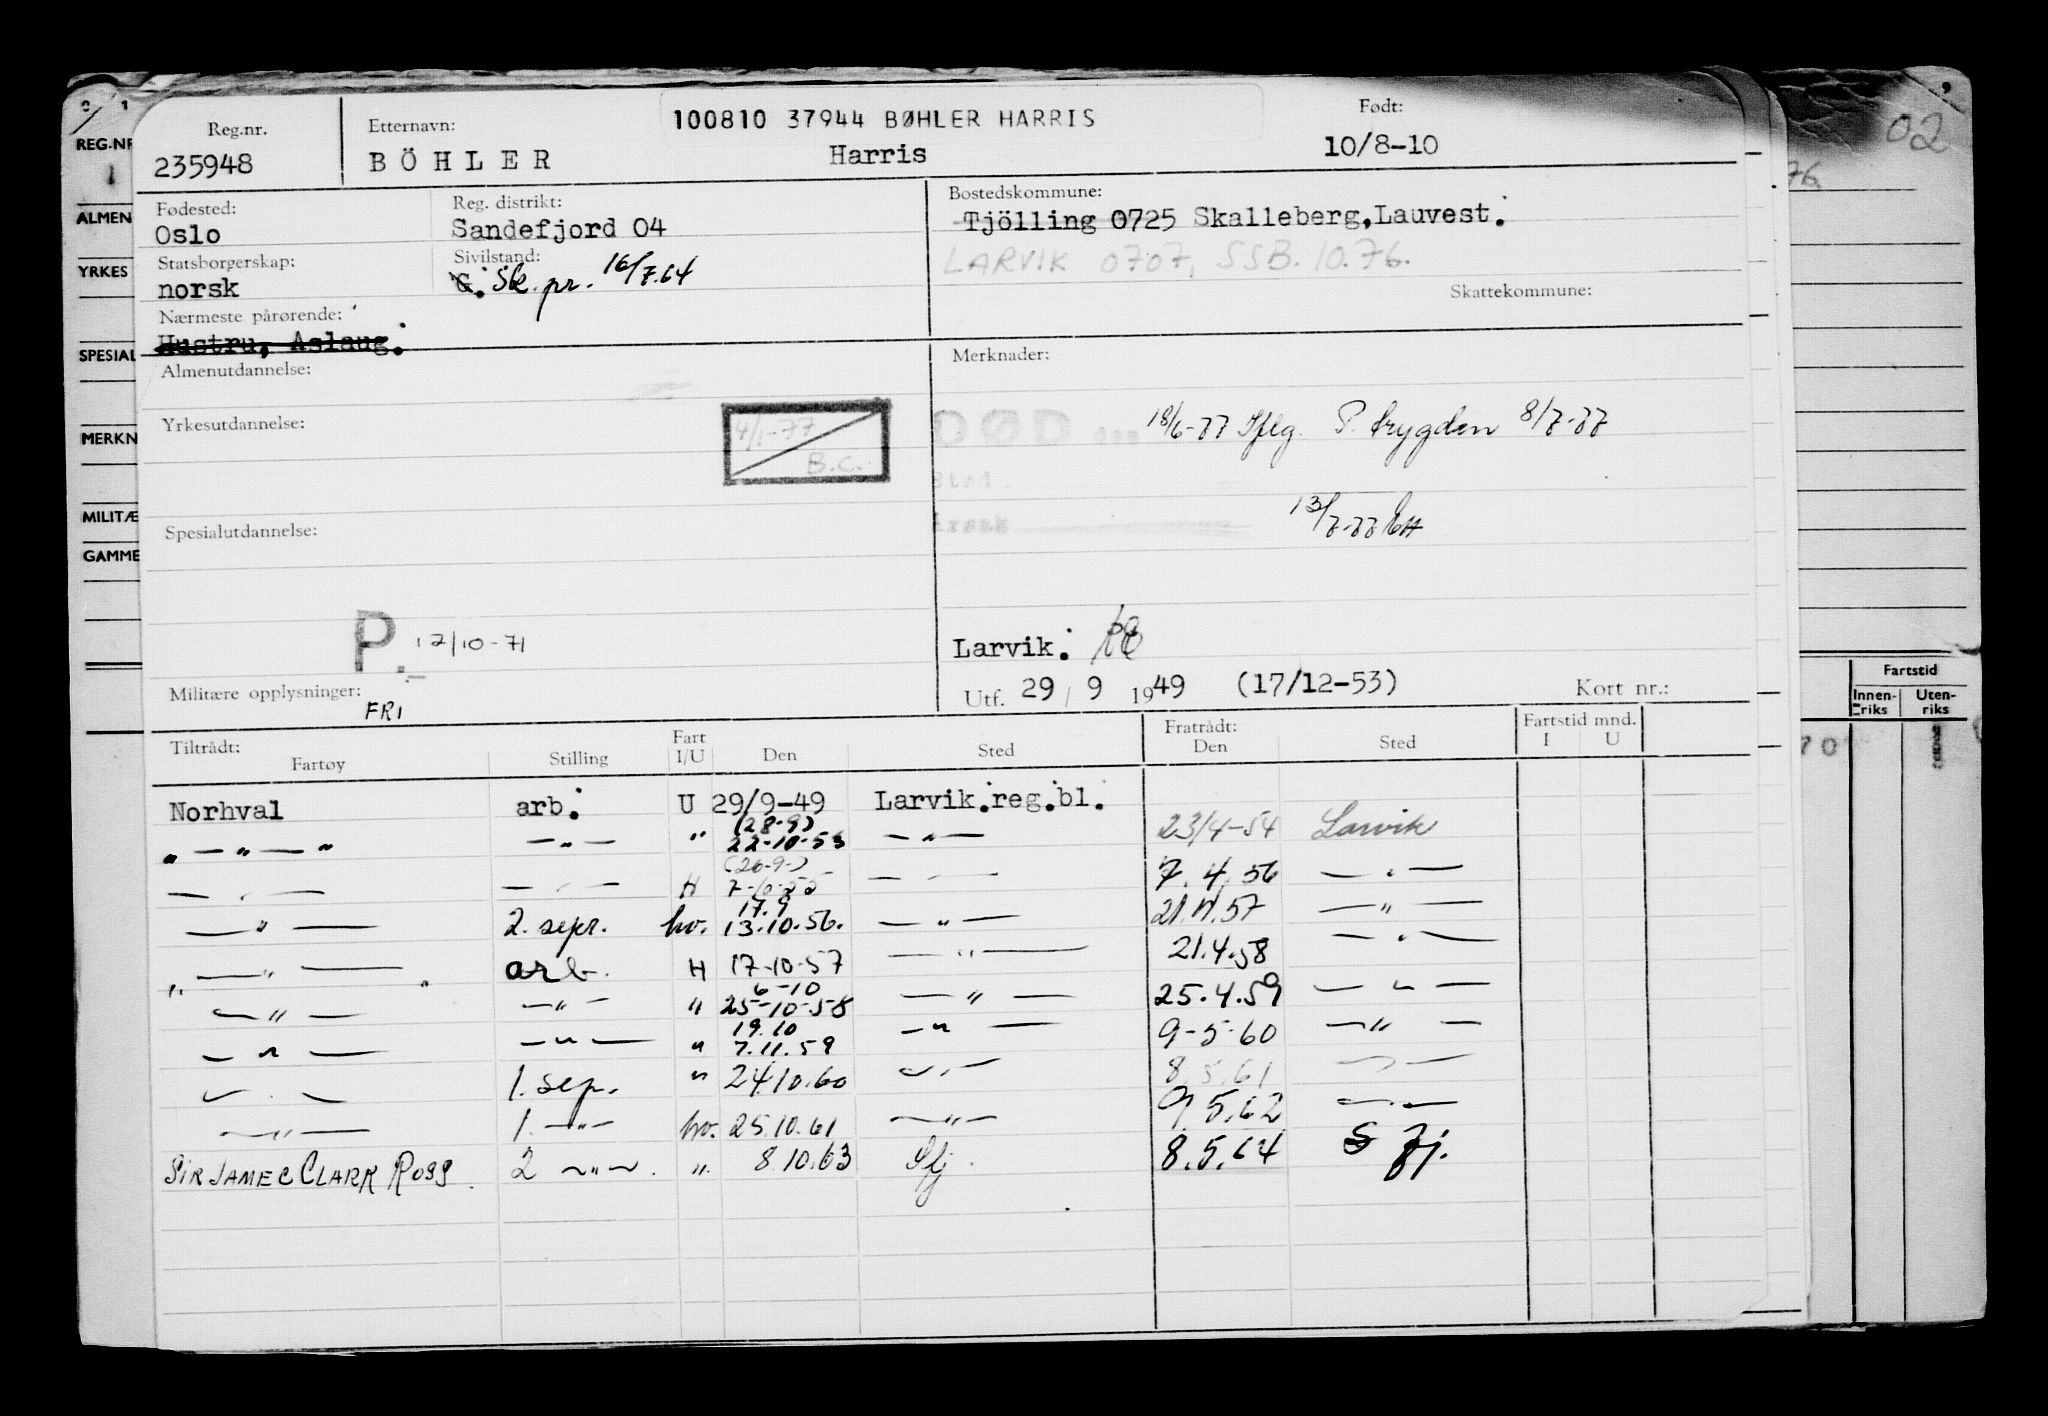 02
76.
REG.NR
ALMEN
YRKES
SPESIAL
MERKN
MILITÆ
GAMME
Reg.nr.
235948
Etternavn:
BÖHLER
100810 37944 BØHLER HARRIS
Harris
Født:
10/8-10
Fødested:
Oslo
Reg. distrikt:
Sandefjord 04
Bostedskommune:
Tjölling 0725 Skalleberg,Lauvest.
LARVIK 0707, SSB. 10.76.
Statsborgerskap:
norsk
Sivilstand:
G. Sk. pr. 16/7.64
Skattekommune:
Nærmeste pårørende:
Hustru, Aslaug.
Almenutdannelse:
Merknader:
Yrkesutdannelse:
4/1-77
B.C.
DØD den 18/6-77 Iflg. P. trygden 8/7-77
Sted
Årsak
13/7-77
Spesialutdannelse:
P. 12/10-71
Larvik.
Militære opplysninger:
FRI
Utf. 29 / 9 1949 (17/12-53)
Kort nr.:
Fartstid
Innen-riks
Uten-riks
70
Tiltrådt:
Fartøy
Stilling
Fart I/U
Den
Sted
Fratrådt:
Den
Sted
Fartstid mnd.
I U
Norhval arb. U 29/9-49 Larvik.reg.bl.
(28.9)
" — " — " — " — " 22-10-53 — " — 23/4-54 Larvik
(26.9.)
— " — — " — H 7-10-55 — " — 7.4.56 — " —
17.9
— " — 2. sepr. hv. 13.10.56. — " — 21.4.57 — " —
— " — arb. H 17-10-57 — " — 21.4.58 — " —
6-10
— " — — " — " 25-10-58 — " — 25.4.59 — " —
19.10
— " — — " — " 7.11.59 — " — 9-5-60 — " —
— " — 1. sep. " 24.10.60 — " — 8.5.61 — " —
— " — 1. — " — hv. 25.10.61 — " — 9.5.62 — " —
SIR JAMEC CLARK ROSS. 2 — " — . ". 8.10.63 Sfj. 8.5.64 S fj.